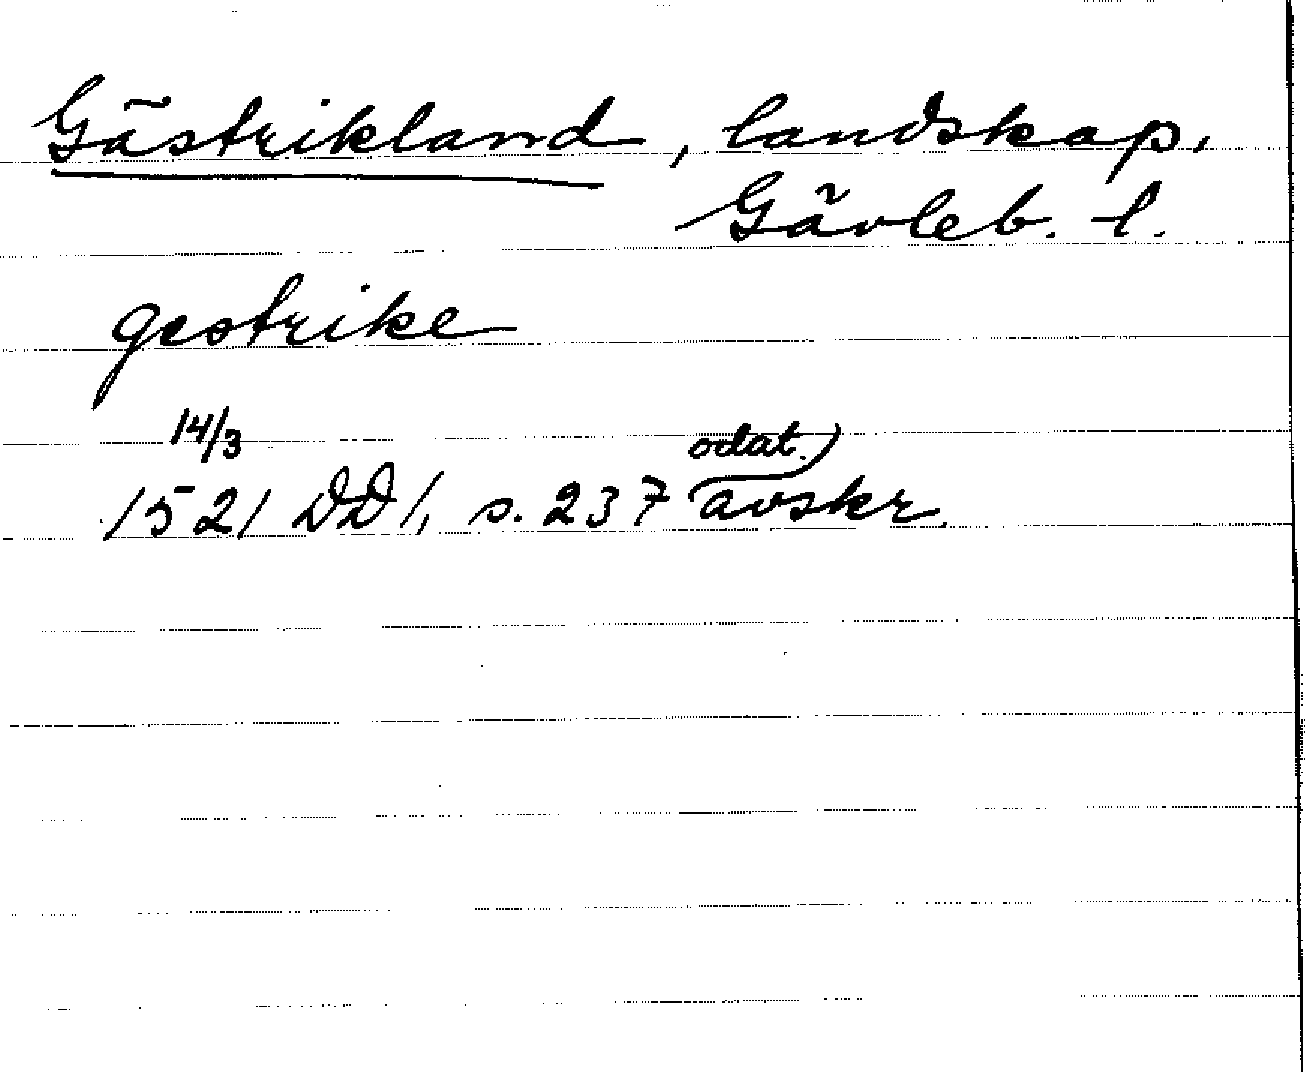 Gästrikland, landskap,
Gävleb. l.
gestrike
14/3 odat.
1521 DD1, s. 237 avskr.